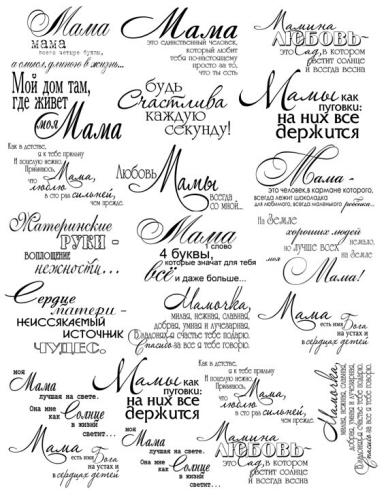 Мама
мама
всего четыре буквы,
а смысл, длиною в жизнь...
Мама
это единственный человек,
который любит
тебя по-настоящему
просто за то,
что ты есть
Мамина
ЛЮБОВЬ-
это Сад, в котором
цветит солнце
и всегда весна
Мой дом там,
где живет
моя
Мама
будь
Счастлива
каждую
секунду!
Мамы как
пуговки:
на них все
держится
Как в детстве,
я к тебе прильну
И поцелую нежно,
Признаюсь,
что Мама,
люблю
в сто раз сильней,
чем прежде.
Любовь
Мамы
всегда
со мной...
Мама -
это человек, в кармане которого,
всегда лежит шоколадка
для любимого, всегда маленького ребенка...
Материнские
РУКИ -
воплощение
нежности...
Мама
1 слово
4 буквы,
которые значат для тебя
всё и даже больше...
На Земле
хороших людей
немало,
но лучше всех
на Земле
моя
Мама!
Сердце
матери -
неиссякаемый
источник
ЧУДЕС.
Мамочка,
милая, нежная, славная,
добрая, умная и лучезарная,
В ладошки я счастье тебе подарю.
Спасибо за все я тебе говорю.
Мама
есть имя Бога
на устах и
в сердцах детей
моя
Мама
лучшая на свете.
Она мне
как Солнце
в жизни
светит...
Мамы как
пуговки:
на них все
держится
Как в детстве,
я к тебе прильну
И поцелую нежно,
Признаюсь,
что Мама,
люблю
в сто раз сильней,
чем прежде.
Мамочка,
милая, нежная, славная,
добрая, умная и лучезарная,
В ладошки я счастье тебе подарю.
Спасибо за все я тебе говорю.
Мама
есть имя Бога
на устах и
в сердцах детей
моя
Мама
лучшая на свете.
Она мне
как Солнце
в жизни
светит...
Мамина
ЛЮБОВЬ-
это Сад, в котором
цветит солнце
и всегда весна